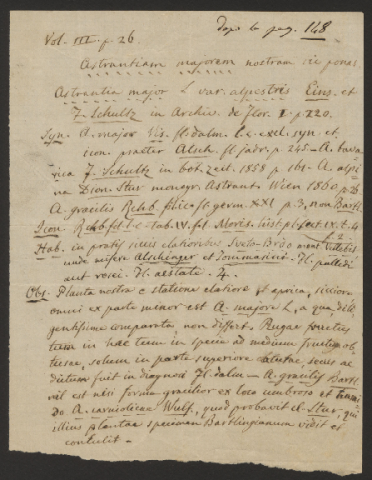 Dopo la pag. 148
Vol. III. p. 26
Astrantiam majorem nostram sic ponas
Astrantia major L. var. alpestris Eins. et
F. Schultz in Archiv. de Flor. p. 220.
Syn. A. major Vis. fl. dalm. l. c. excl. syn. et
icon. praeter Alsch. fl. jadr. p. 245 – A. bava
rica F. Schultz in bot. zeit. 1858 p. 161 – A. alpi
na Dion. Stur monogr. Astrant. Wien 1860 p. 26.
A. gracilis Rchb. fil. ic. fl. germ. XXI p. 3, non Bartl.
Icon. Rchb. fil. l. c. tab. IV. fil. Moris. hist. pl. sect. IX. t. 4
Hab. in pratis siccis elatioribus Sveto-Brdo mont. Vellebit
unde misere Alschinger et Tommasini. Fl. pallidi
aut rosei. Fl. aestate. ♃.
Obs. Planta nostra e statione elatiore et aprica, sicciore
omni ex parte minor est A. majore L., a qua, dili-
gentissime comparata, non differt. Rugae fructus
tum in hac tum in specie ad medium fructum ob-
tusae, solum in parte superiore acutae secus ac
dictum fuit in diagnosi Fl. dalm. – A. gracilis Bartl.
nil est nisi forma gracilior ex loco umbroso et humi-
do A. carniolicae Wulf., quod probavit cl. Stur, qui
illius plantae specimen Bartlingianum vidit et
contulit –